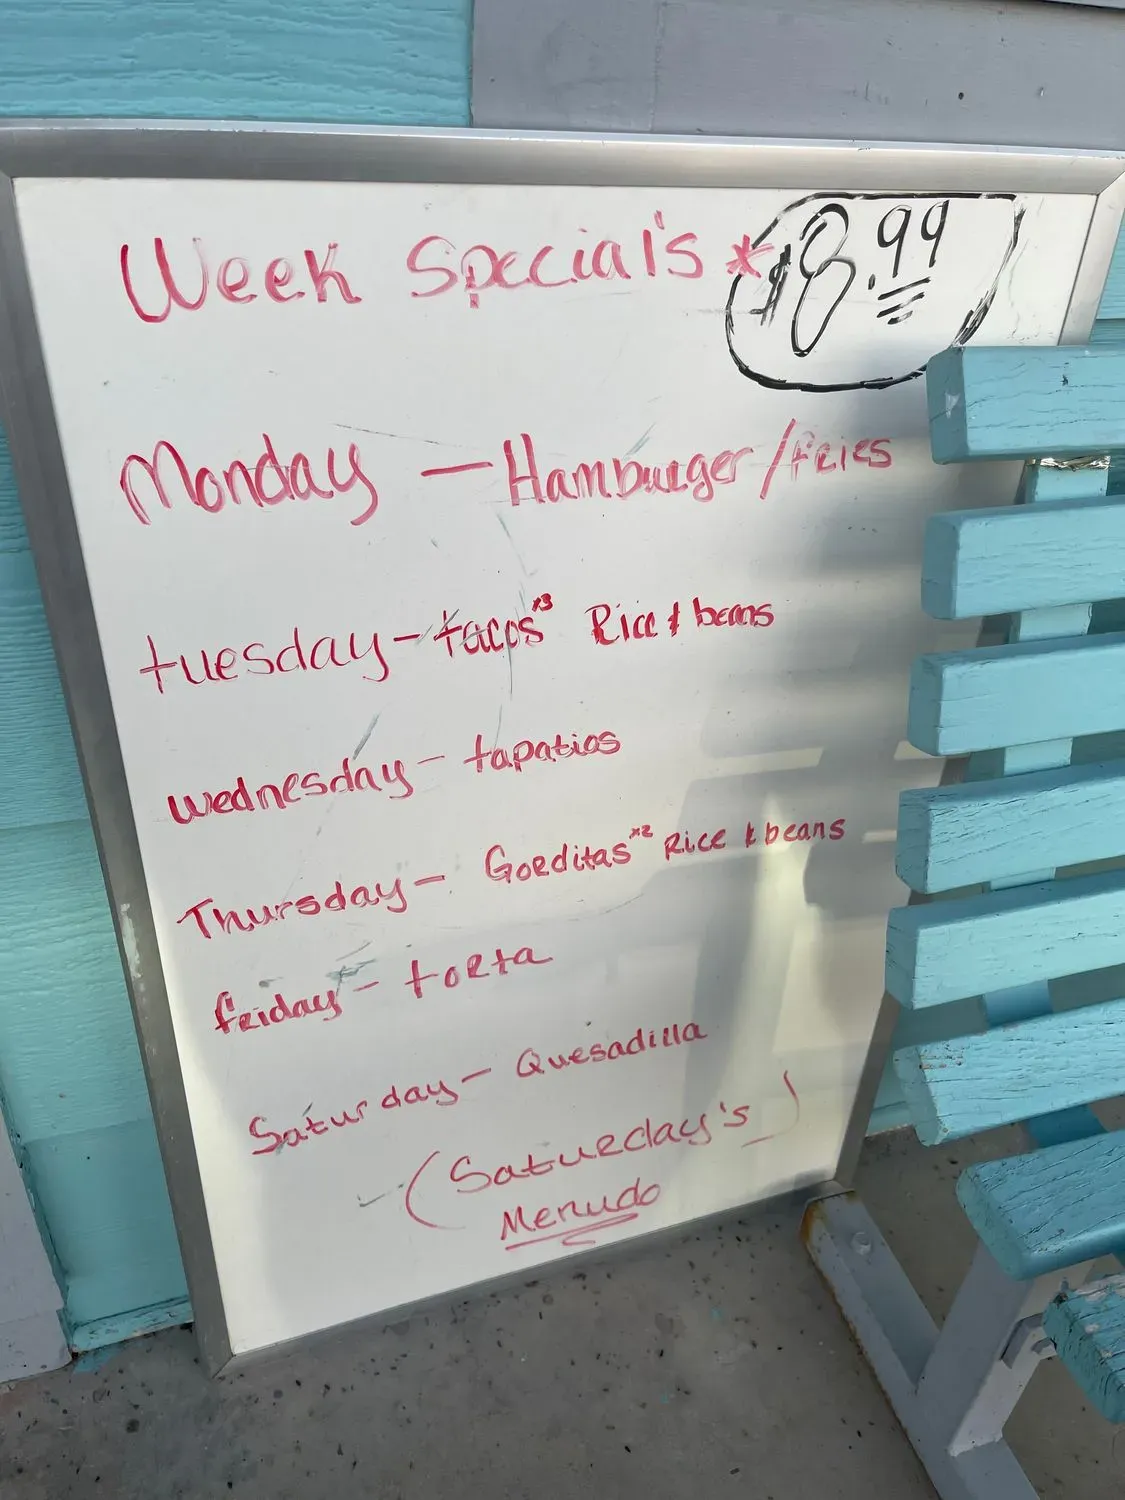 Week Special's * $8.99
Monday — Hamburger / fries
tuesday - tacos x3 Rice & beans
Wednesday - tapatios
Thursday - Gorditas x2 Rice & beans
friday - torta
Saturday - Quesadilla
(Saturday's)
Menudo